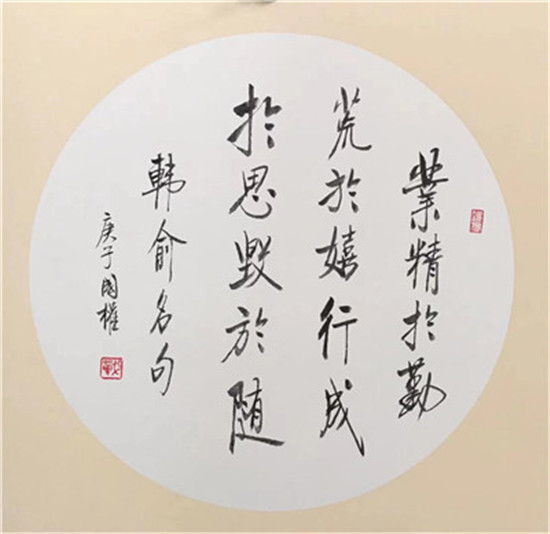 業精於勤
荒於嬉行成
於思毀於随
韩俞名句
庚子国權